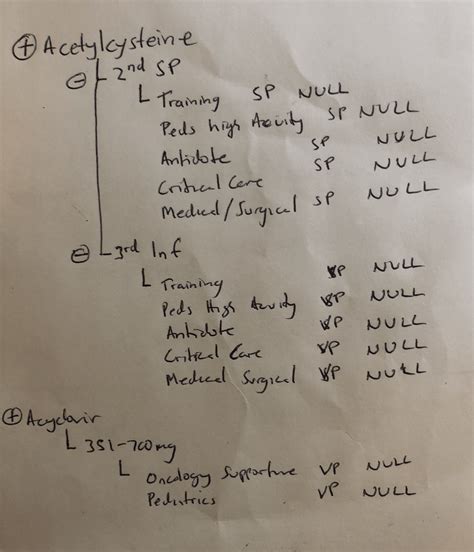 ⊕ Acetylcysteine
⊖ 2nd SP
Training SP NULL
Peds High Acuity SP NULL
Antidote SP NULL
Critical Care SP NULL
Medical/Surgical SP NULL
⊖ 3rd Inf
Training VP NULL
Peds High Acuity VP NULL
Antidote VP NULL
Critical Care VP NULL
Medical Surgical VP NULL
⊕ Acyclovir
351-700mg
Oncology Supportive VP NULL
Pediatrics VP NULL